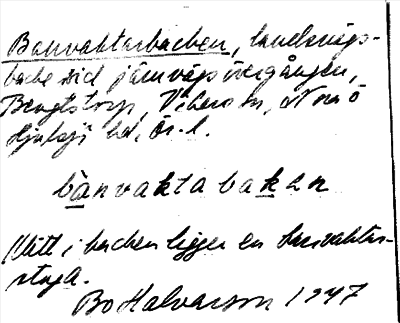 Banvaktarbacken, landsvägs-
backe vid järnvägsövergången,
Bengtstorp, Viberom, Norrö
Hjulsjö bd, Ör. l.
bànvaktabakən
Mitt i backen ligger en banvaktar-
stuga.
Bo Halvarson 1947